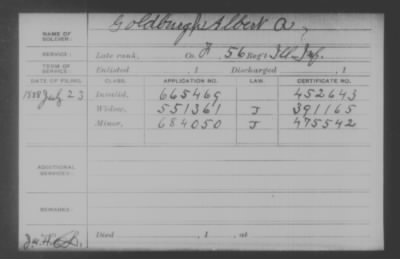 NAME OF SOLDIER: Goldburgh Albert A
SERVICE: Late rank, Co. F, 56 Reg't Ill. Inf.
TERM OF SERVICE: Enlisted , 1 Discharged , 1
DATE OF FILING. CLASS. APPLICATION NO. LAW. CERTIFICATE NO.
1888 July 23 Invalid, 665469 452643
Widow, 551361 J 391165
Minor, 684050 J 475542
ADDITIONAL SERVICES:
REMARKS:
Died , 1 , at